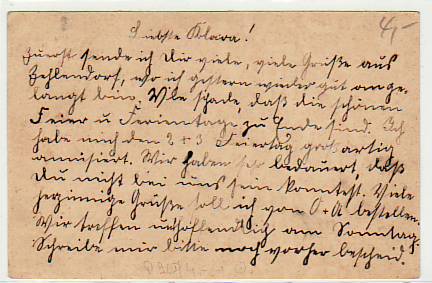 4,-
Liebste Klara!
Zuerst sende ich Dir viele, viele Grüße aus
Zehlendorf, wo ich gestern wieder gut ange-
langt bin. Wie schade, daß die schönen
Feier u Ferientage zu Ende sind. Ich
habe mich den 2 + 3 Feiertag großartig
amüsiert. Wir haben sehr bedauert, daß
Du nicht bei uns sein konntest. Viele
Grüße soll ich von O + A bestellen.
Wir treffen uns hoffendlich am Sonntag.
Schreibe mir bitte noch vorher bescheid.